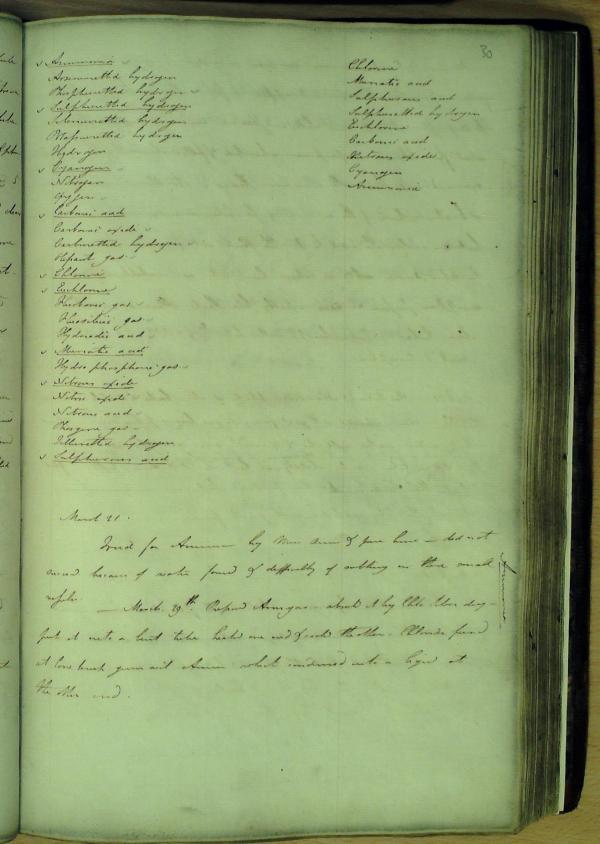 30
Ammonia
Arseniuretted hydrogen
Phosphuretted hydrogen
Sulphuretted hydrogen
Seleniuretted hydrogen
Potassuretted hydrogen
Hydrogen
Cyanogen
Nitrogen
Oxygen
Carbonic acid
Carbonic oxide
Carburetted hydrogen
Olefiant gas
Chlorine
Euchlorine
Fluoboric gas
Fluosilicic gas
Hydriodic acid
Muriatic acid
Hydro phosphoric gas
Nitrous oxide
Nitric oxide
Nitrous acid
Phosgene gas
Telluretted hydrogen
Sulphurous acid
Chlorine
Muriatic acid
Sulphurous acid
Sulphuretted hydrogen
Euchlorine
Carbonic acid
Nitrous oxide
Cyanogen
Ammonia
March 21.
Tried for Ammon by Mur Amm & pure lime — did not
succeed because of water formed & difficulty of working in these small
vessels.
— March 29th. Prepared Amm gas — about it by Chlo Silver dry —
put it into a bent tube heated one end & cooled the other. Chloride fused
at low heat gave out Amm which condensed into a liquid at
the other end.
Ammonia